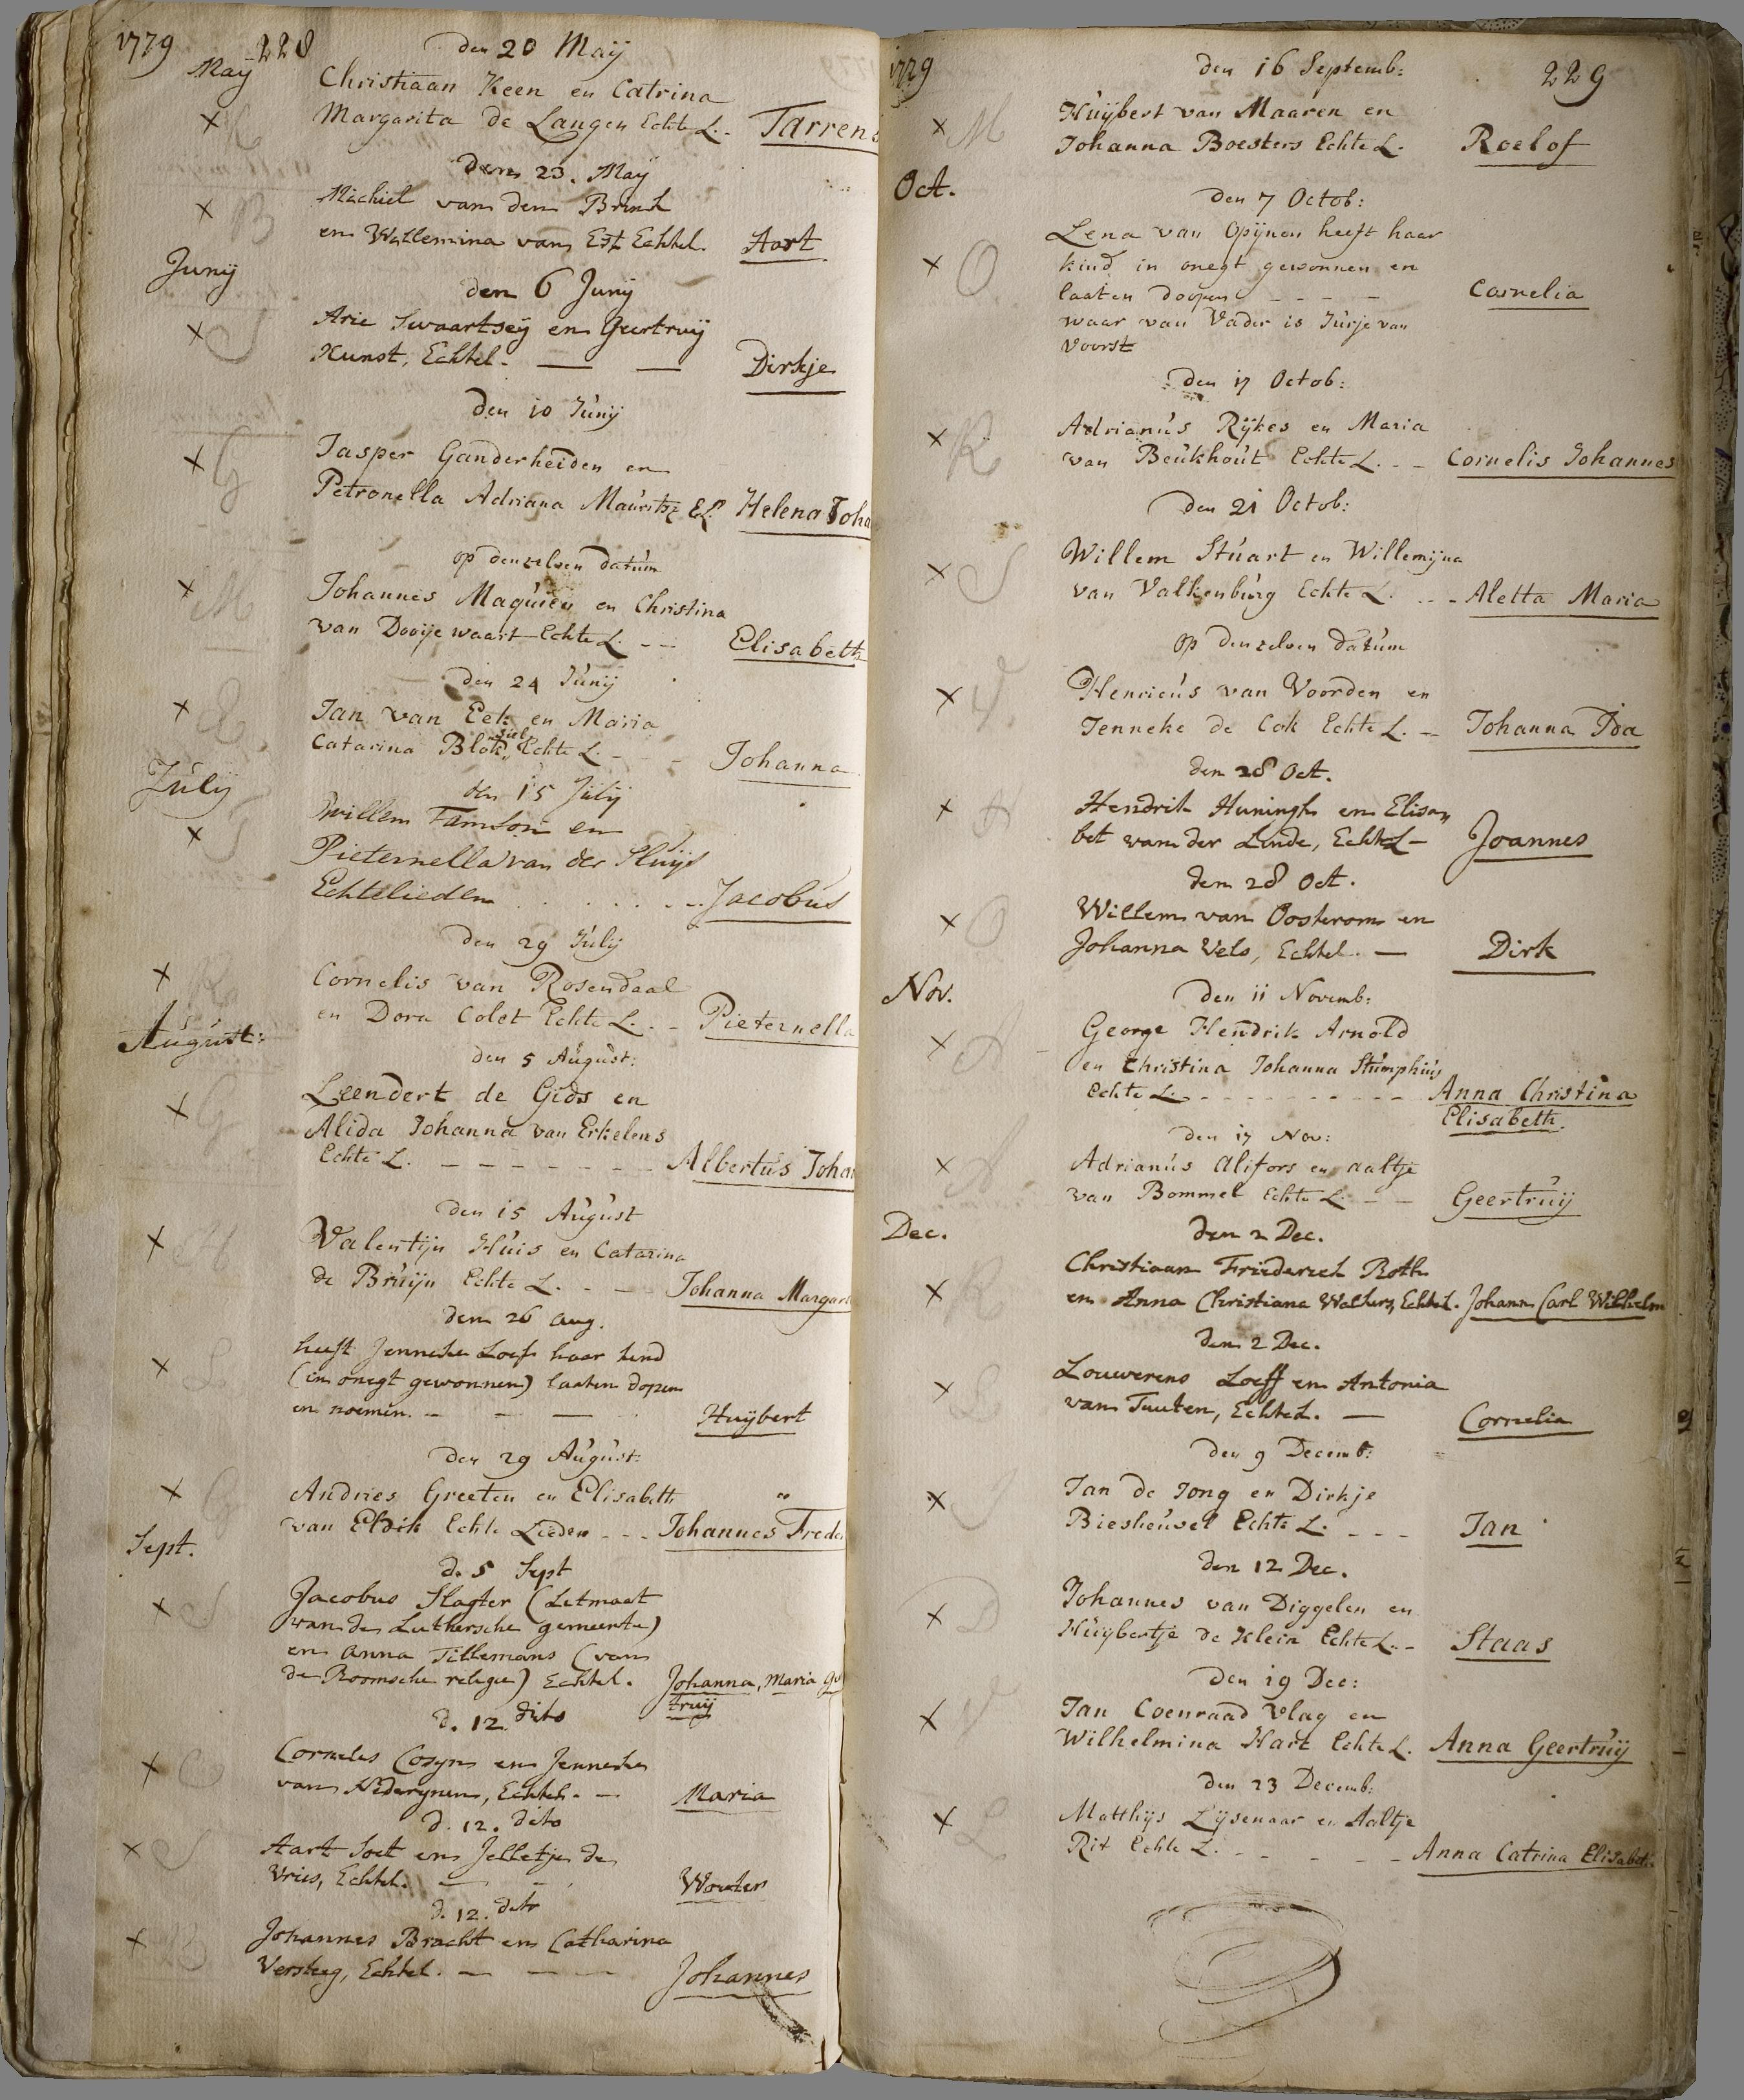 1779 228
May
den 20 Maÿ
Christiaan Keen en Catrina
Margarita de Langen Echte L. - Tarrens
den 23. Maÿ
Michiel van den Brink
en Willemina van Est Echtel. Aart
Junÿ
den 6 Junÿ
Arie Swaartseÿ en Geertruÿ
Kunst, Echtel. — — Dirkje
den 10 Junÿ
Jasper Ganderheiden en
Petronella Adriana Mauritsz EL. Helena Joha
op denzelven datum
Johannes Maquieu en Christina
van Dooÿewaart Echte L. -- Elisabeth
den 24 Junÿ
Jan van Eek en Maria
Catarina Blok, Echte L. - - - Johanna
Julÿ
den 15 Julÿ
Willem Tamson en
Pieternella van der Sluÿs
Echtelieden . . . . . . Jacobus
den 29 Julÿ
Cornelis van Rosendaal
en Dora Colet Echte L. . - Pieternella
August:
den 5 August:
Leendert de Gids en
Alida Johanna van Erkelens
Echte L. - - - - - - - Albertus Johan
den 15 August
Valentÿn Huis en Catarina
de Bruÿn Echte L. - - - Johanna Margare
den 26 aug.
heeft Jenneke Loef haar kind
(in onegt gewonnen) laaten dopen
en noemen. - - — Huÿbert
den 29 August:
Andries Greeten en Elisabeth
van Eldik Echte Lieden - - - Johannes Frede
Sept.
d. 5 Sept
Jacobus Slagter (Letmaat
van de Luthersche gemeente)
en Anna Tillemans (van
de Roomsche religie) Echtel. Johanna, Maria Ge
truÿ
d. 12. dito
Cornelis Cosyn en Jenneke
van Niderynen, Echtel. - Maria
d. 12. dito
Aart Soet en Jelletje de
Vries, Echtel. — - Wouter
d. 12. dito
Johannes Bracht en Catharina
Versteeg, Echtel. — — — Johannes
1779 229
den 16 Septemb:
Huÿbert van Maaren en
Johanna Boesters Echte L. Roelof
Oct.
den 7 Octob:
Lena van Opÿnen heeft haar
kind in onegt gewonnen en
laaten doopen - - - - Cornelia
waar van Vader is Jurje van
Voorst
den 17 Octob:
Adrianus Rÿkes en Maria
van Beukhout Echte L. - - Cornelis Johannes
den 21 Octob:
Willem Stuart en Willemÿna
van Valkenburg Echte L. - - - Aletta Maria
op denzelven datum
Henricus van Voorden en
Jenneke de Cok Echte L. - Johanna Ida
den 28 Oct.
Hendrik Huningh en Elisa„
bet van der Linde, Echte L - Joannes
den 28 Oct.
Willem van Oosterom en
Johanna Vels, Echtel. — Dirk
Nov.
den 11 Novemb:
George Hendrik Arnold
en Christina Johanna Stumphius
Echte L. - - - - - - - - - - Anna Christina
Elisabeth.
den 17 Nov:
Adrianus Alifors en aaltje
van Bommel Echte L. - - Geertruÿ
Dec.
den 2 Dec.
Christiaan Friederich Roth
en Anna Christiana Walhers, Echtel. Johann Carl Wilhelm
den 2 Dec.
Louwerens Loeff en Antonia
van Tuuten, Echte L. — Cornelia
den 9 Decemb:
Jan de Jong en Dirkje
Biesheuvel Echte L. - - - Jan
den 12 Dec.
Johannes van Diggelen en
Huÿbertje de Klein Echte L. - Staas
den 19 Dec:
Jan Coenraad Vlag en
Wilhelmina Hart Echte L. Anna Geertruÿ
den 23 Decemb:
Matthÿs Lÿsenaar en Aaltje
Rit Echte L. - - - - - Anna Catrina Elisabeth.